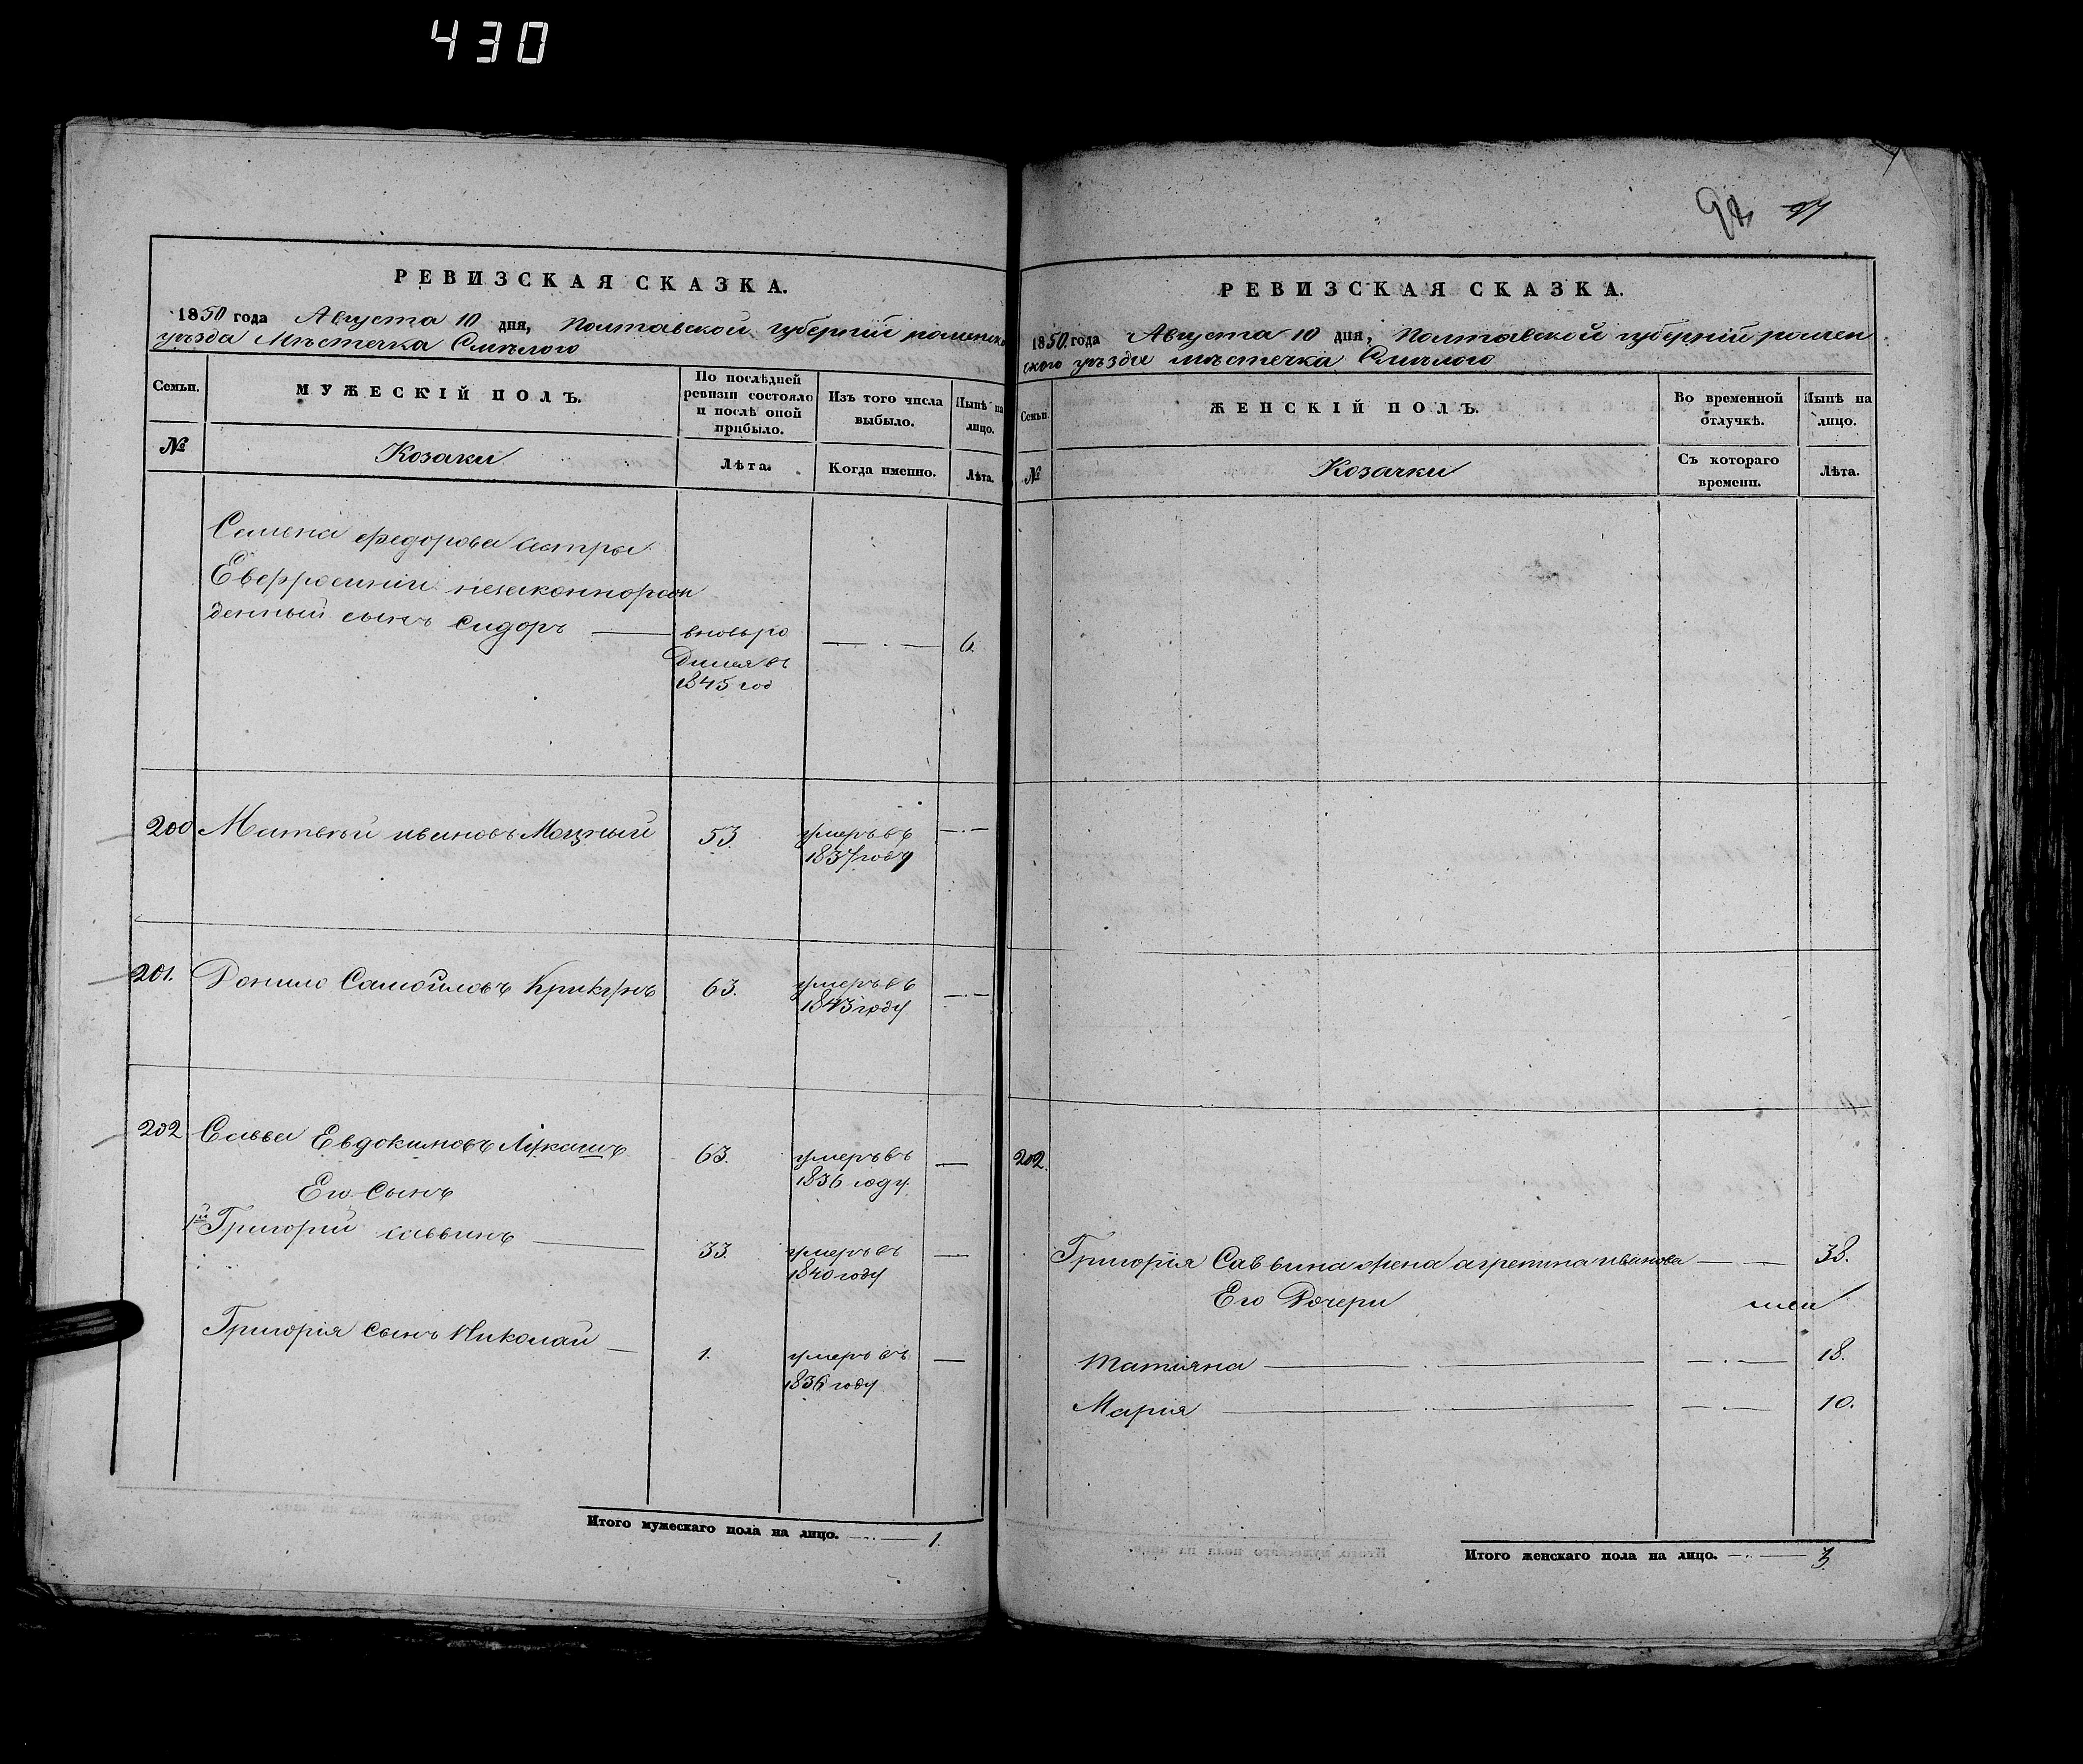 430
РЕВИЗСКАЯ СКАЗКА.
1850 года Августа 10 дня, Полтавской губерніи роменска
уѣзда Мѣстечка Смѣлого
Семьи.
МУЖЕСКІЙ ПОЛЪ.
По послѣдней
ревизіи состояло
и послѣ оной
прибыло.
Изъ того числа
выбыло.
Нынѣ на
лицо.
№
Козаки
Лѣта.
Когда именно.
Лѣта.
Семена федорова сестры
Евфросиніи незаконнорож
денный сынъ Сидоръ
вновьро
дился въ
1845 год
6.
200 Матвѣй ивановъ Моцный 53. умеръ въ
1837 году
201. Данило Самойловъ Крикунъ 63. умеръ въ
1843 году
202 Савва Евдокимовъ Лукашъ 63. умеръ въ
1836 году
Его Сынъ
1й Григорій саввинъ 33. умеръ въ
1840 году
Григорія Сынъ Николай 1. умеръ въ
1836 году
Итого мужескаго пола на лицо. 1.
97
РЕВИЗСКАЯ СКАЗКА.
1850 года Августа 10 дня, Полтавской губерніи ромен
ского уѣзда мѣстечка Смѣлого
Семьи.
ЖЕНСКІЙ ПОЛЪ.
Во временной
отлучкѣ.
Нынѣ на
лицо.
№
Козачки
Съ котораго
времени.
Лѣта.
202.
Григорія Саввина жена агрепина иванова 38.
Его Дочери
Татіяна 18.
Марія 10.
Итого женскаго пола на лицо. 3.